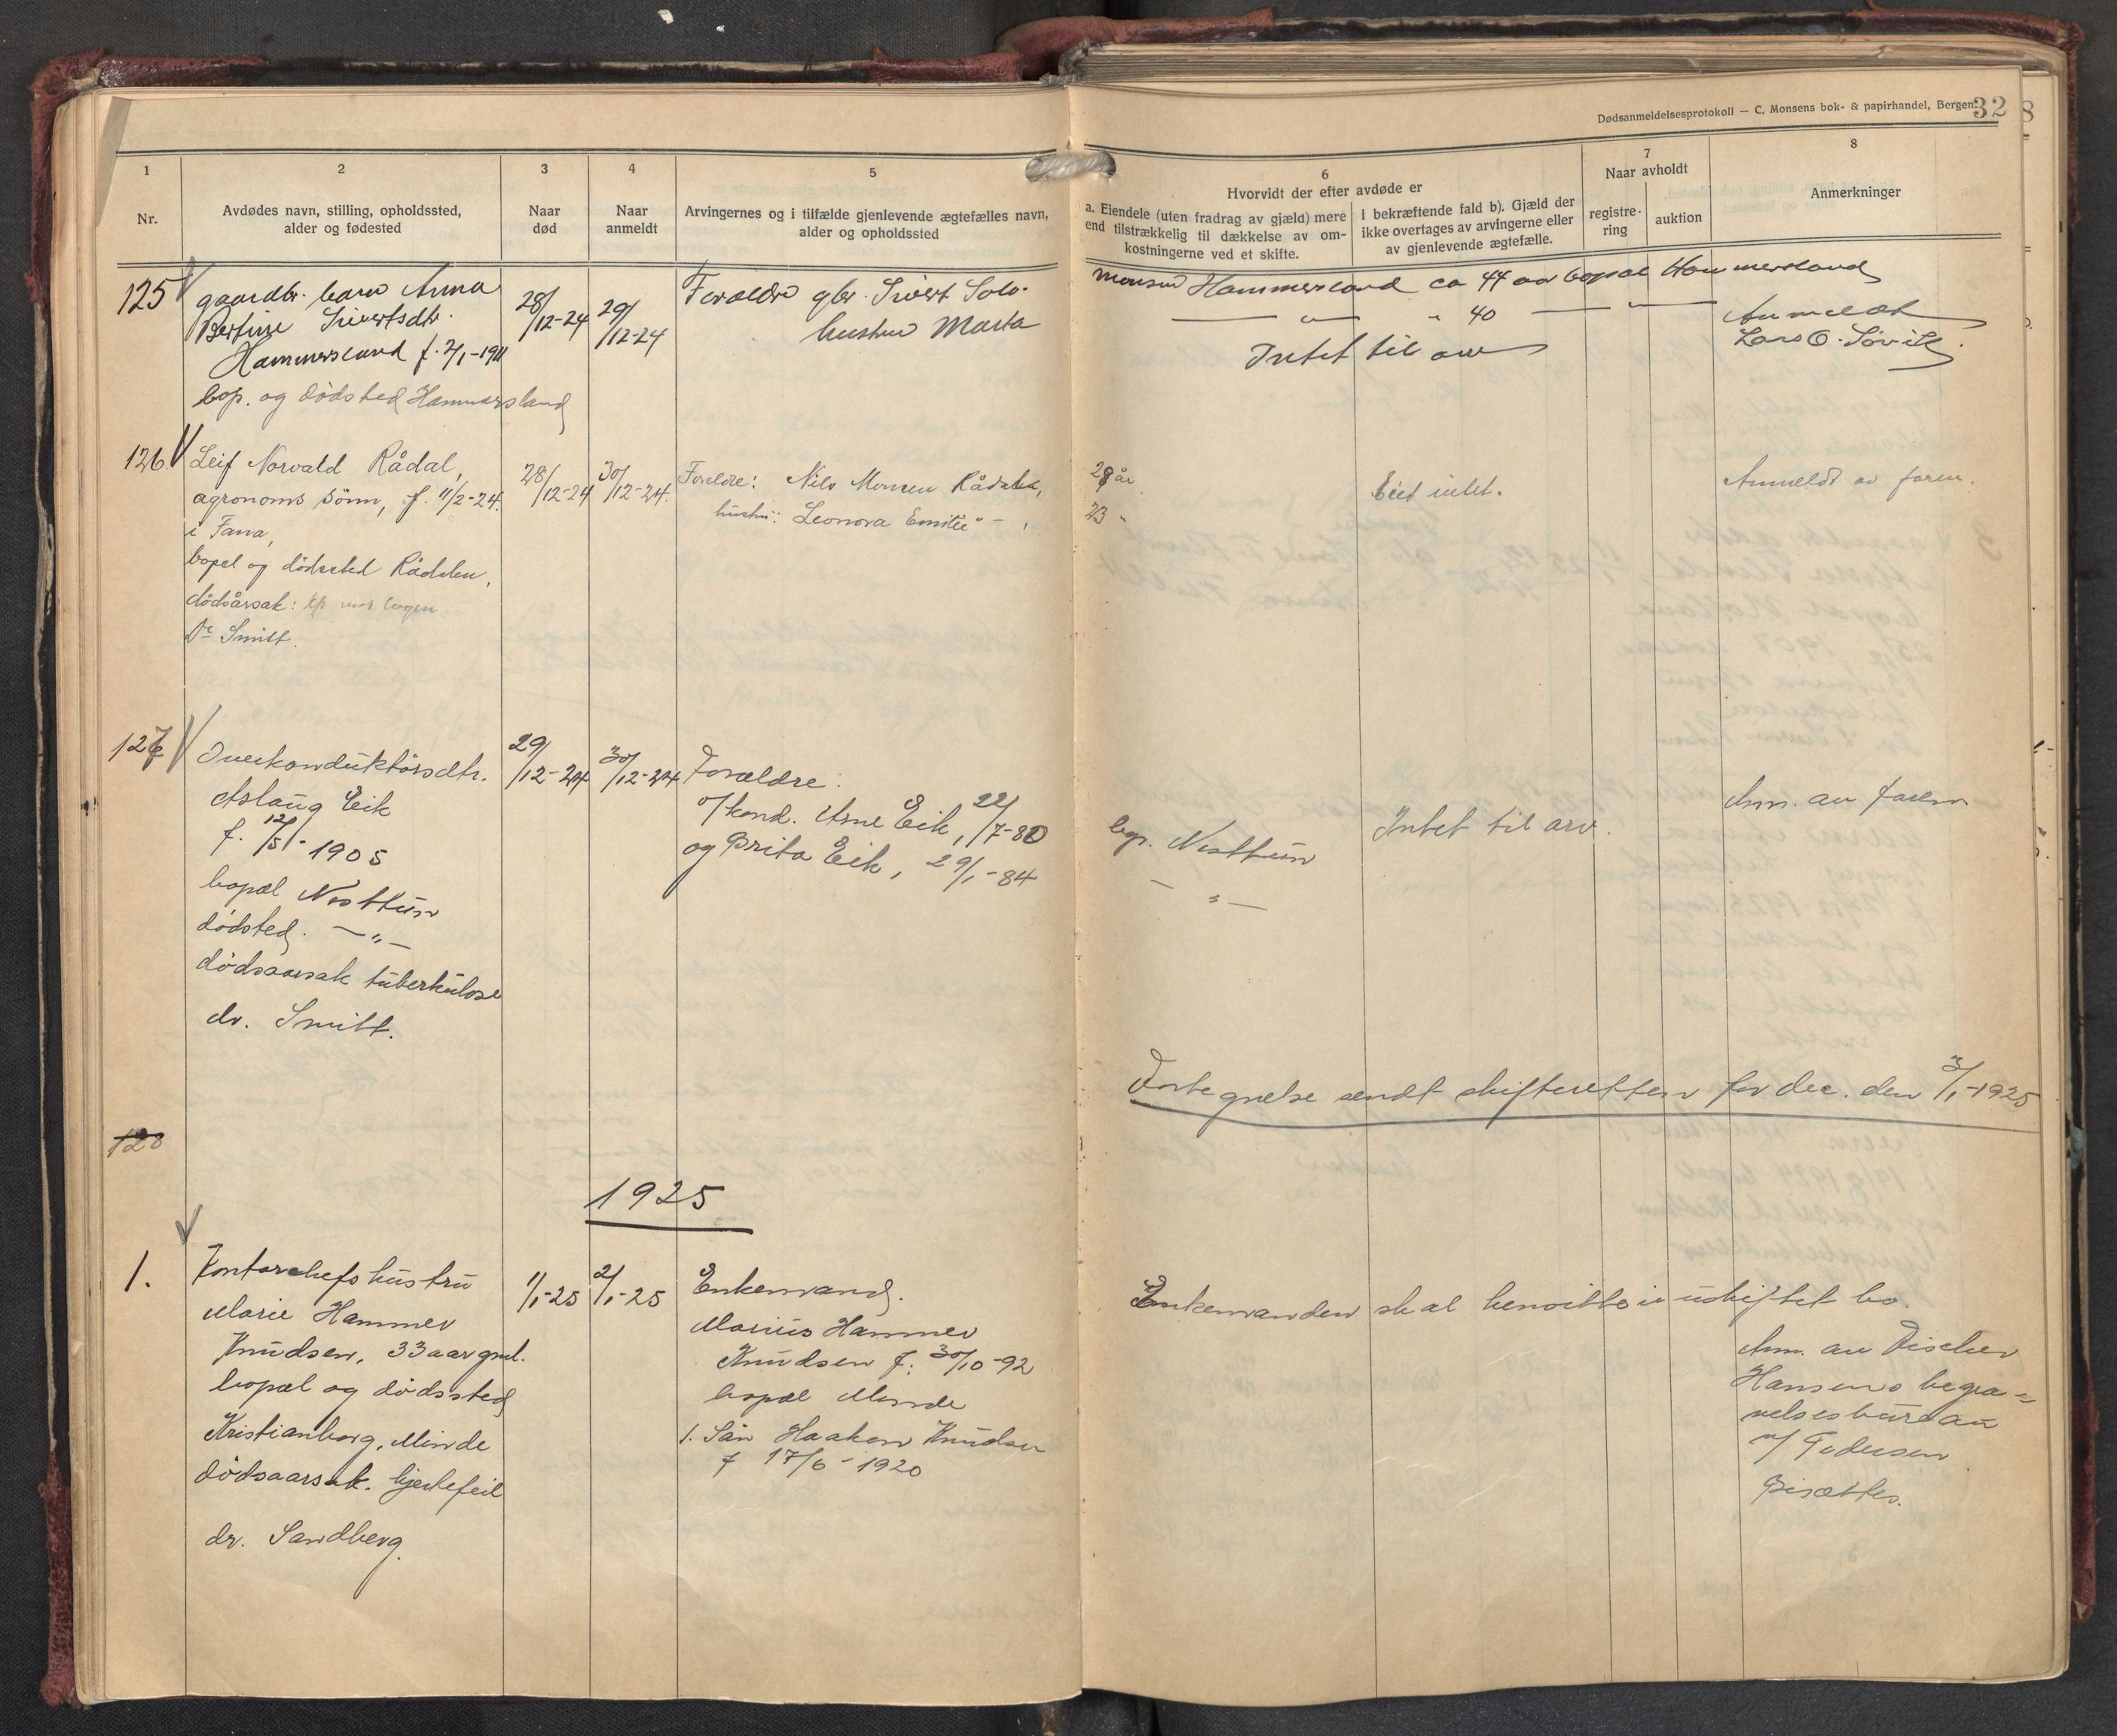 Dødsanmeldelsesprotokoll — C. Monsens bok- & papirhandel, Bergen.
32
1
2
3
4
5
6
7
8
Nr.
Avdødes navn, stilling, opholdssted,
alder og fødested
Naar
død
Naar
anmeldt
Arvingernes og i tilfælde gjenlevende ægtefælles navn,
alder og opholdssted
Hvorvidt der efter avdøde er
a. Eiendele (uten fradrag av gjæld) mere
end tilstrækkelig til dækkelse av om-
kostningerne ved et skifte.
I bekræftende fald b). Gjæld der
ikke overtages av arvingerne eller
av gjenlevende ægtefælle.
Naar avholdt
registre-
ring
auktion
Anmerkninger
125
gaardbr. barn Anna
Bertine Sivertsdtr.
Hammersland f. 2/1-1911
bop. og dødsted Hammersland
28/12-24
29/12-24
Forældre gbr. Sivert
hustru Marta
Monsen Hammersland ca 44 aar bopæl Hammersland
— " — " 40 — " —
Intet til arv
Anmeldt
Lars O.
126
Leif Norvald Rådal,
agronoms sønn, f. 11/2-24.
i Fana,
bopel og dødssted Rådalen,
dødsårsak:
Dr Smitt.
28/12-24
30/12-24.
Foreldre: Nils Monsen Rådal,
hustru: Leonora Emilie " — ,
28 år
23 "
Eiet intet.
Anmeldt av faren.
127
Overkonduktørsdtr.
Aslaug Eik
f. 12/5-1905
bopæl Nesttun
dødsted. — " —
dødsaarsak tuberkulose
dr. Smitt.
29/12-24
30/12-24
Forældre:
o/kond. Arne Eik, 22/7-80
og Brita Eik, 29/1-84
bop. Nesttun
— " —
Intet til arv.
Anm. av faren
Fortegnelse sendt skifteretten for dec. den 3/1-1925
128
1925
1.
Kontorchefs hustru
Marie Hammer
Knudsen, 33 aar gml.
bopæl og dødssted
Kristianborg, Minde
dødsaarsak. hjertefeil
dr. Sandberg.
1/1-25
2/1-25
Enkemand.
Marius Hammer
Knudsen f. 30/10-92
bopæl Minde
1. Søn Haakon Knudsen
f 17/6-1920
Enkemanden skal hensitte i uskiftet bo.
Anm. av Fischer
Hansens begra=
velsesbureau
v/ Pedersen
Bisættes.